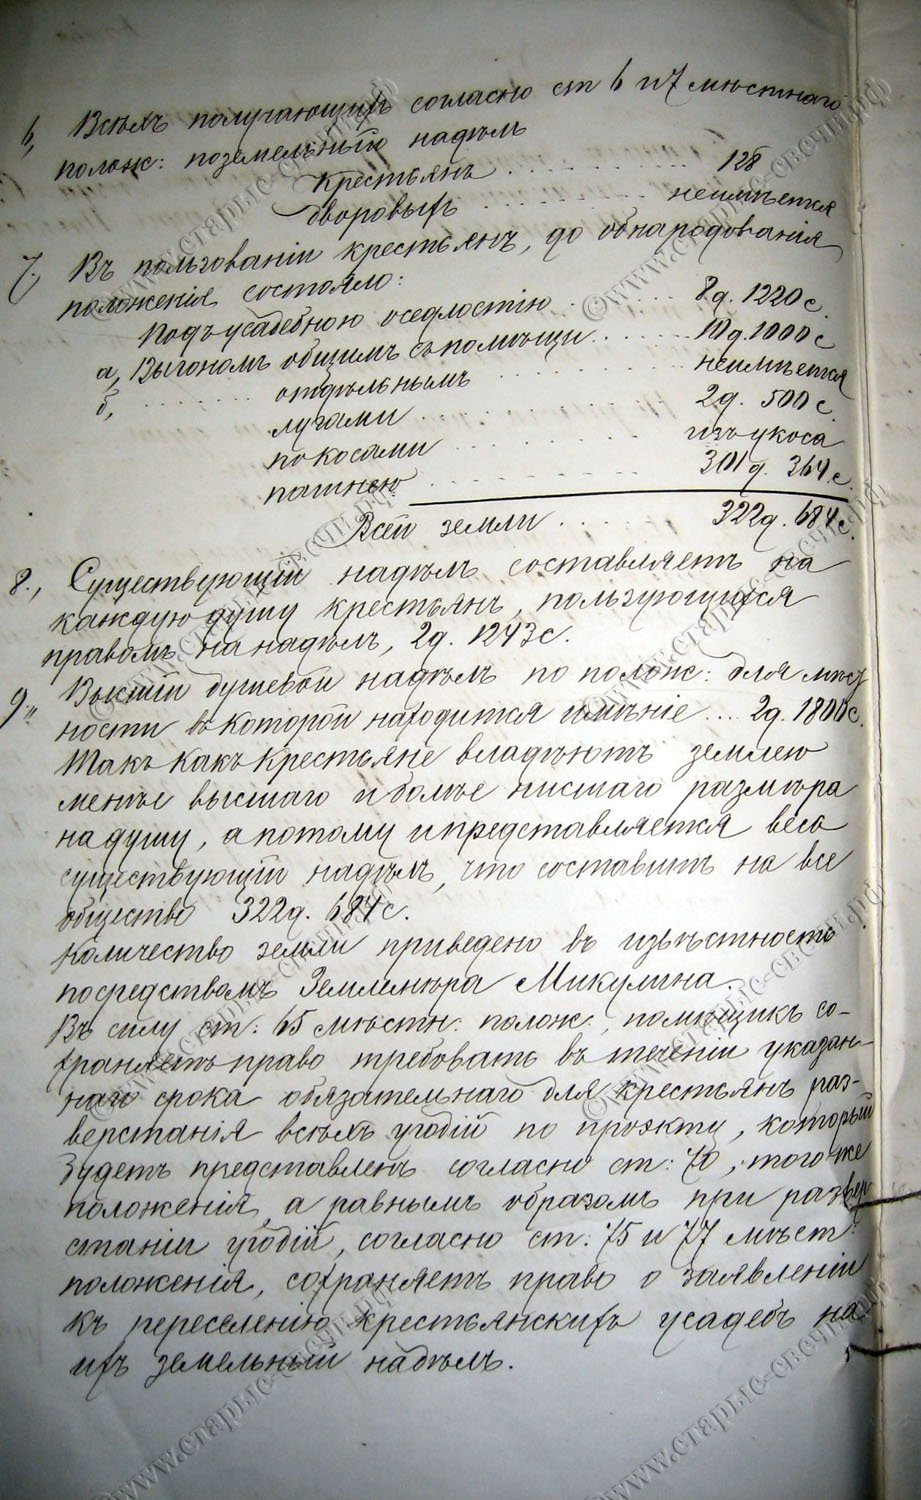 6, Всѣмъ получающимъ согласно ст 6 и 7 мѣстнаго
полож: поземельный надѣлъ
Крестьянъ . . . . . . . . 128
дворовыхъ . . . . . . . . неимѣется
7. Въ пользованіи крестьянъ, до обнародованія
положенія состояло:
Подъ усадебною оседлостію . . . . 8д. 1220 с.
а, Выгономъ общимъ съ помѣщи. . . . . . 10д. 1000 с
б, . . . . . . . отдѣльнымъ . . . . . . . неимѣется
лугами . . . . . . . . . . 2д. 500 с.
покосами . . . . . . . изъ укоса
пашнею . . . . . . . . 301 д. 364 с.
Всей земли . . . . . 322д. 684 с.
8., Существующій надѣлъ составляетъ на
каждую душу крестьянъ, пользующихся
правомъ на надѣлъ, 2д. 1243 с.
9,, Высшій душевой надѣлъ по полож: для мѣст
ности въ которой находится имѣніе ... 2д. 1800 с.
Такъ какъ крестьяне владѣютъ землею
менѣе высшаго и болѣе нисшаго размѣра
на душу, а потому и представляется весь
существующій надѣлъ, что составитъ на все
общество 322д. 684 с.
Количество земли приведено въ извѣстность
посредствомъ Землемѣра Микулина.
Въ силу ст: 65 мѣстн: полож:, помѣщикъ со-
храняетъ право требовать въ теченіи указан-
наго срока обязательнаго для крестьянъ раз-
верстанія всѣхъ угодій по проэкту, который
будетъ представленъ согласно ст: 70, того-же
положенія, а равнымъ образомъ при развер
станіи угодій, согласно ст: 75 и 77 мѣст:
положенія, сохраняетъ право о заявленіи
къ переселенію крестьянскихъ усадебъ на
ихъ земельный надѣлъ.
©www.старыс-свсчи.рф